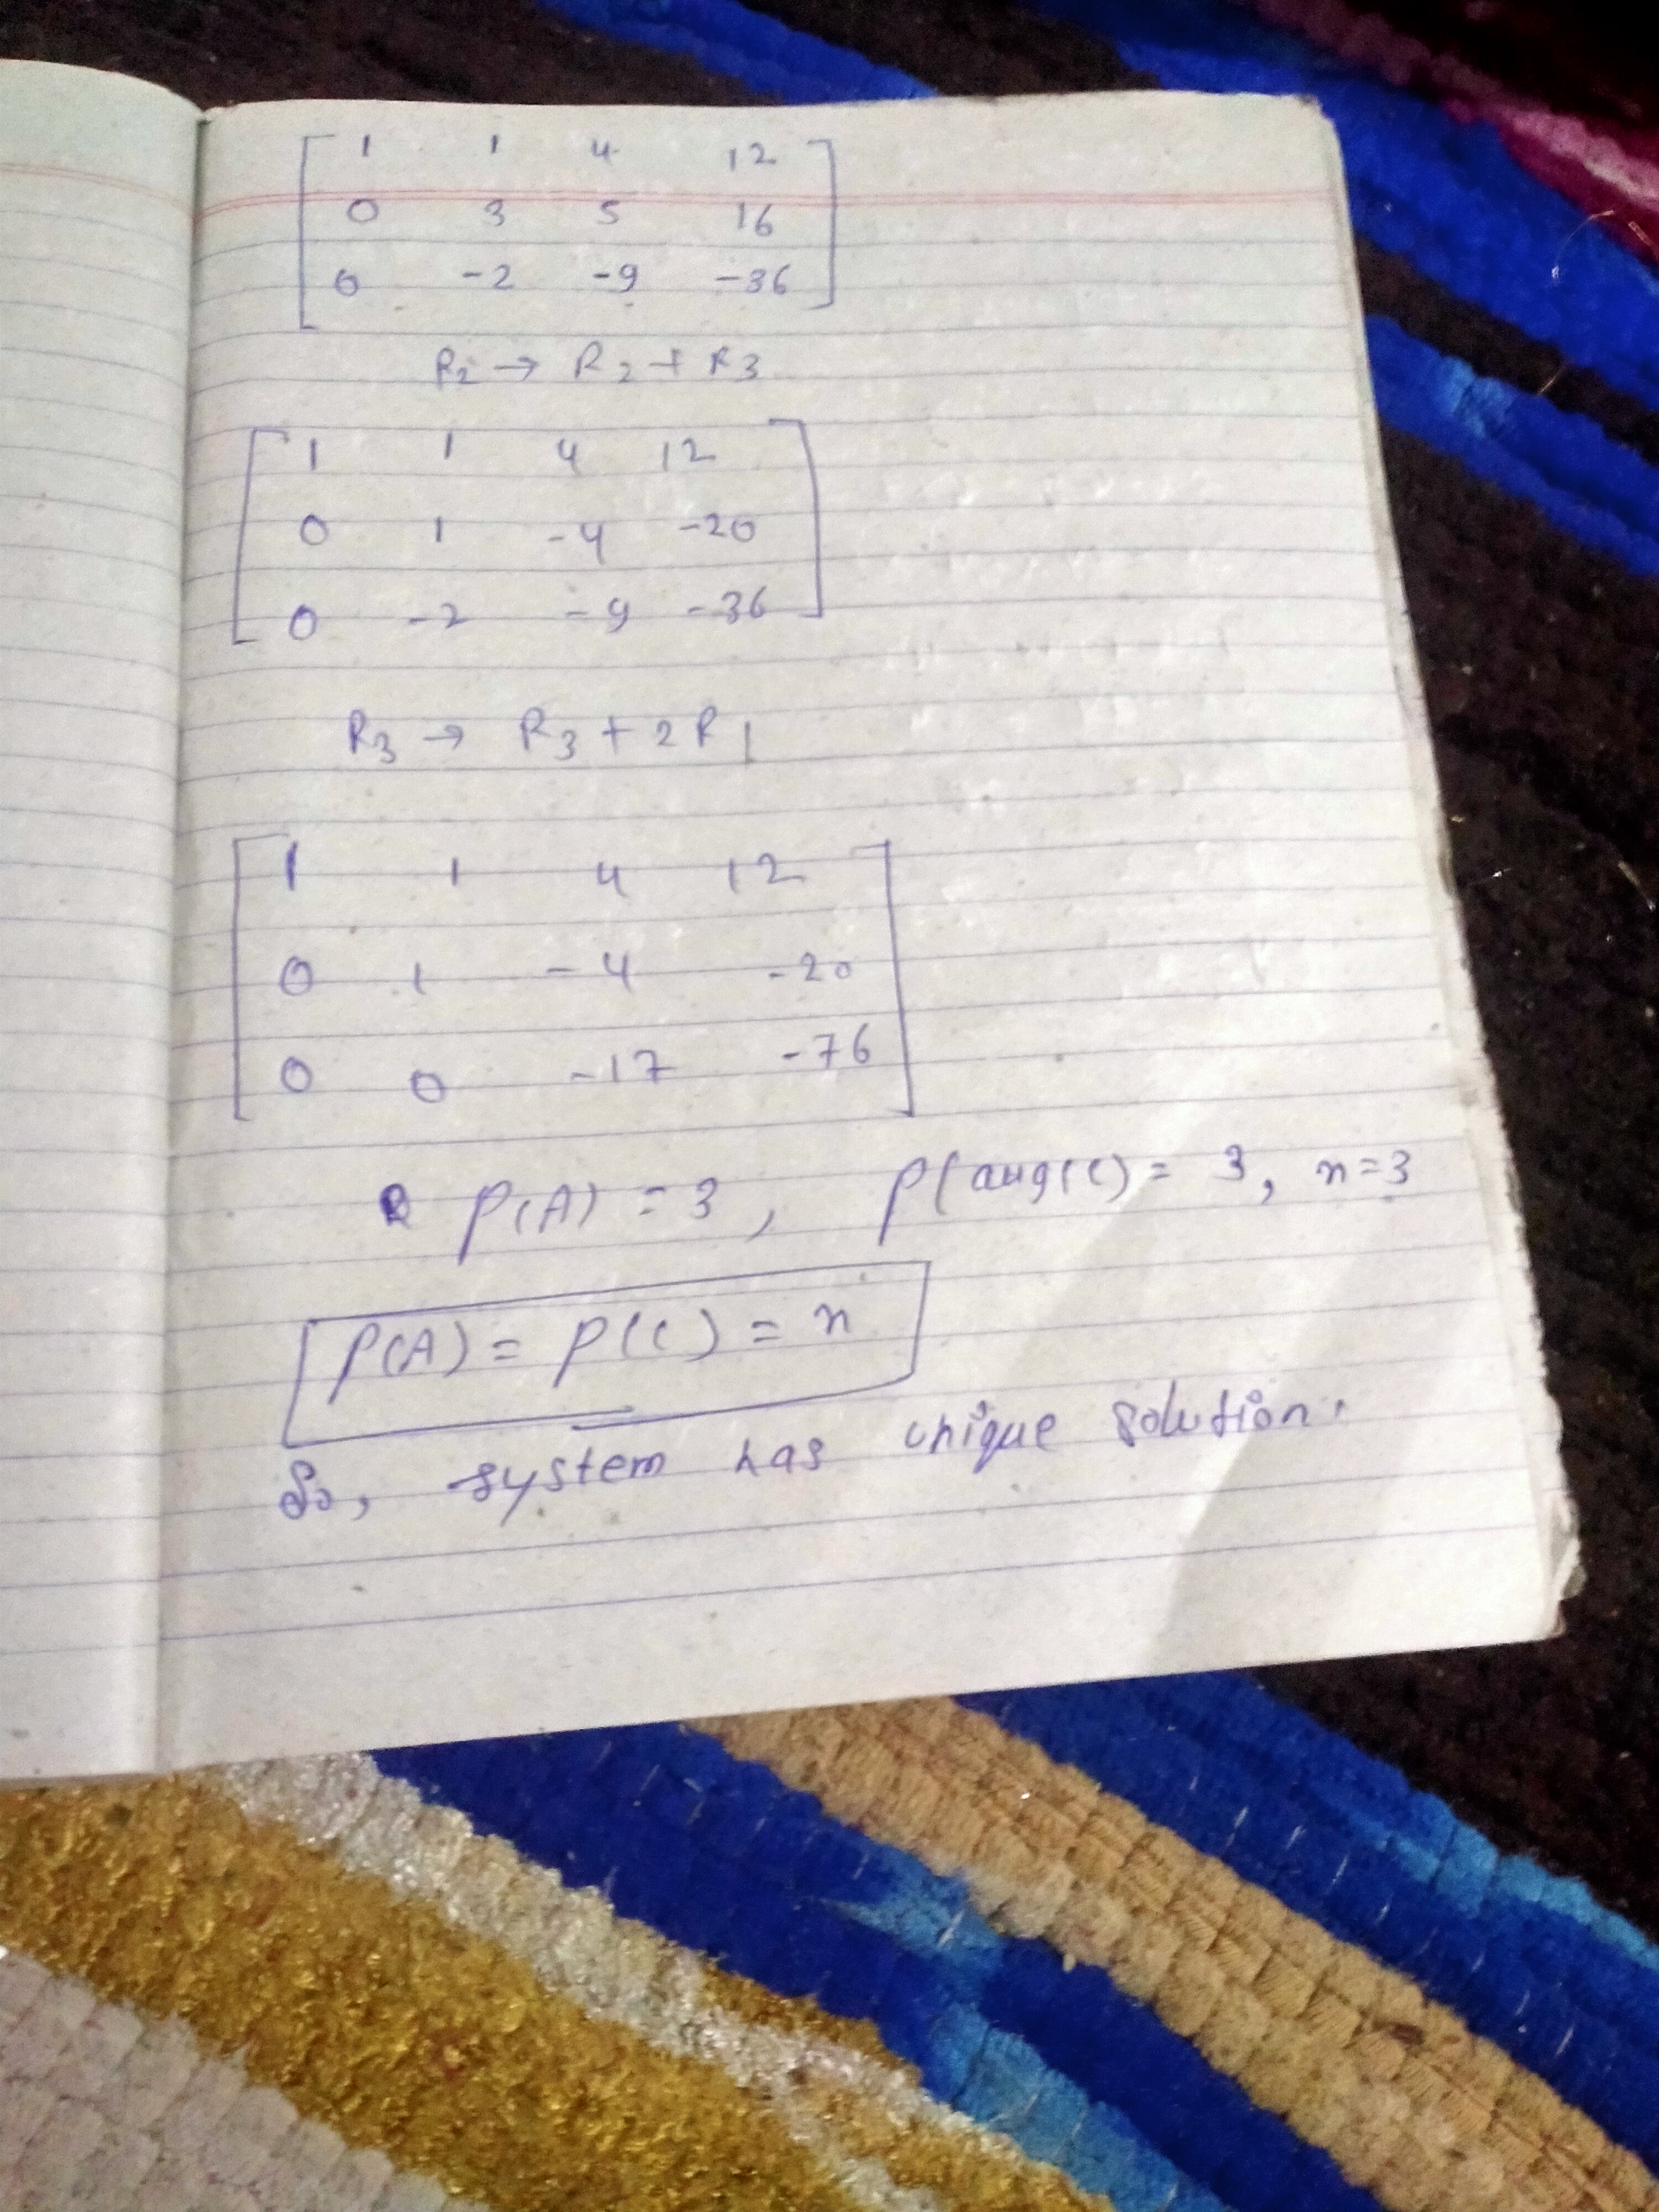 1 1 4 12
0 3 5 16
0 -2 -9 -36
R2 → R2 + R3
1 1 4 12
0 1 -4 -20
0 -2 -9 -36
R3 → R3 + 2R1
1 1 4 12
0 1 -4 -20
0 0 -17 -76
ρ(A) = 3, ρ(aug(C) = 3, n=3
ρ(A) = ρ(C) = n
So, system has unique solution.